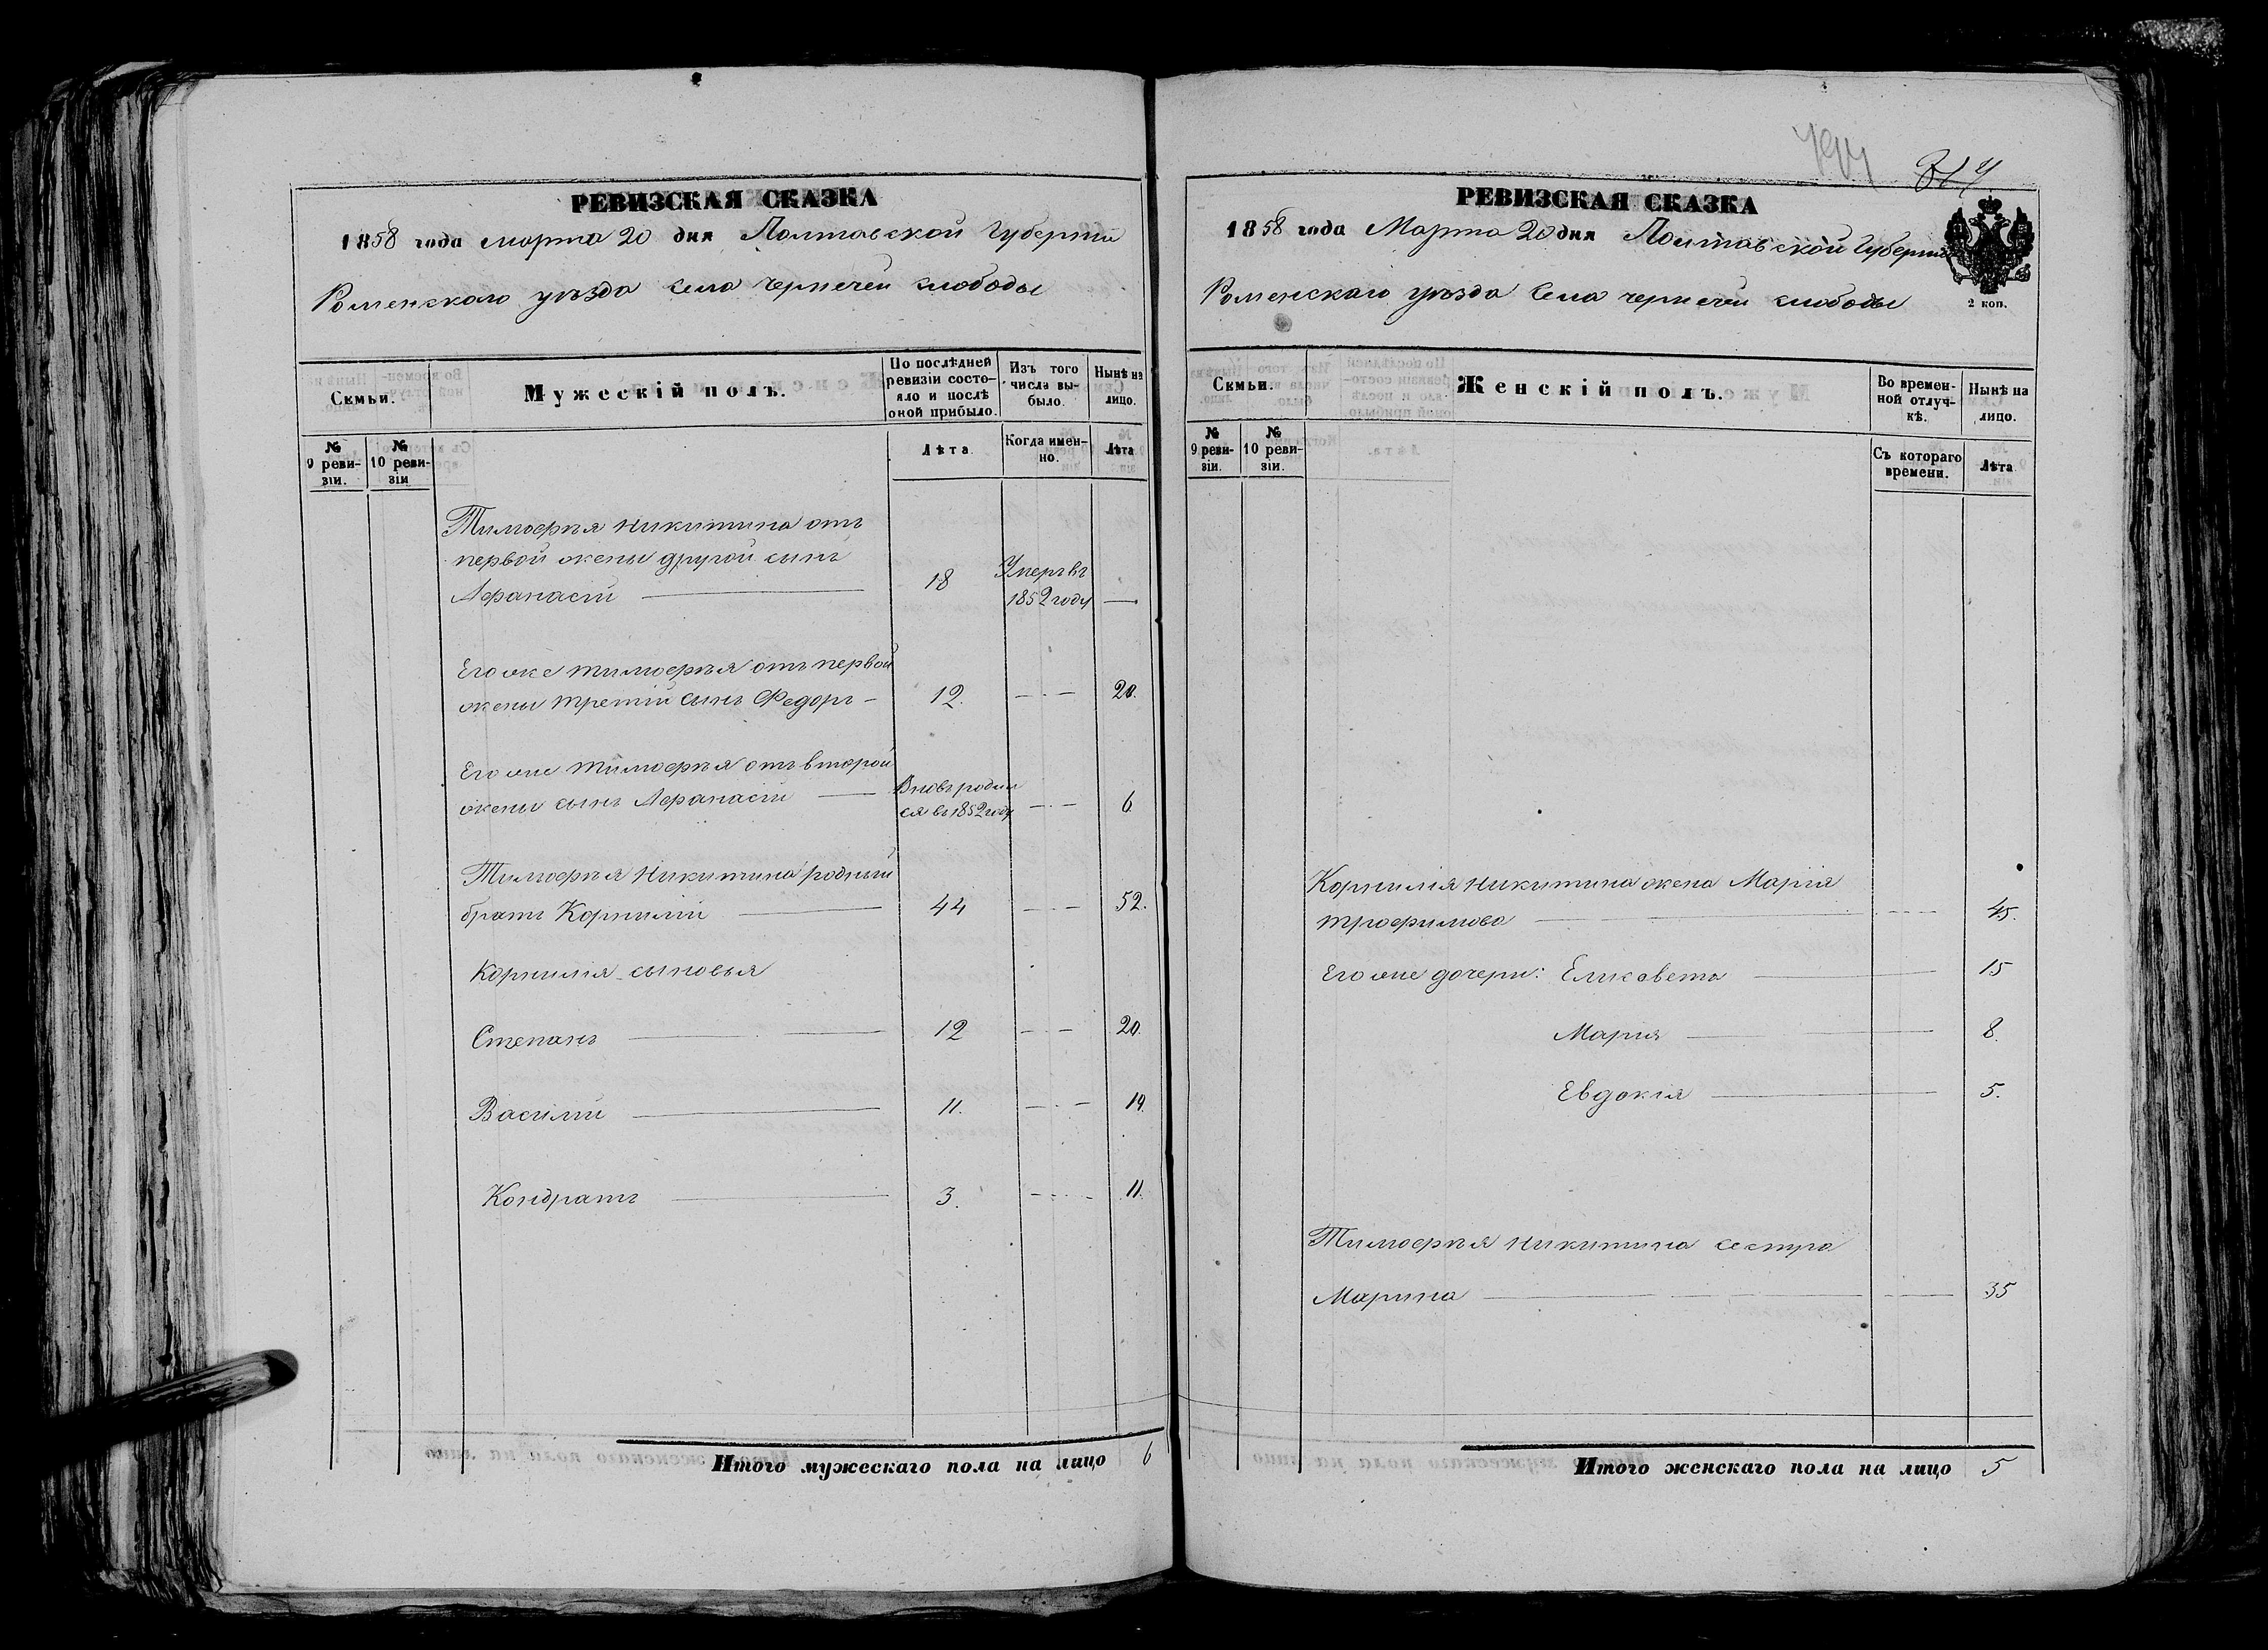 РЕВИЗСКАЯ СКАЗКА
1858 года марта 20 дня Полтавской Губерніи
Роменскаго уѣзда села Чернечей слободы
Семьи.
Мужескій полъ.
По послѣдней ревизіи состояло и послѣ оной прибыло.
Изъ того числа выбыло.
Нынѣ на лицо.
№ 9 ревизіи.
№ 10 ревизіи
Лѣта.
Когда именно.
Лѣта
Тимофѣя Никитина отъ
первой жены другой сынъ
Афанасій — 18 Умеръ въ 1852 году —
Его же Тимофѣя отъ первой
жены третій сынъ Федоръ — 12. — 20.
Его же Тимофѣя отъ второй
жены сынъ Афанасій — Вновь родился въ 1852 году — 6
Тимофѣя Никитина родный
братъ Корнилій — 44 — 52.
Корнилія сыновья
Степанъ — 12 — 20.
Василій — 11. — 19.
Кондратъ — 3. — 11.
Итого мужескаго пола на лицо 6
РЕВИЗСКАЯ СКАЗКА
1858 года Марта 20 дня Полтавской Губерніи
Роменскаго уѣзда села Чернечей слободы
2 коп.
Семьи.
Женскій полъ.
Во временной отлучкѣ.
Нынѣ на лицо.
№ 9 ревизіи.
№ 10 ревизіи.
Съ котораго времени.
Лѣта
Корнилія Никитина жена Марія
Трофимова — 45.
Его же дочери: Елисавета — 15
Марія — 8.
Евдокія — 5.
Тимофѣя Никитина сестра
Марина — 35
Итого женскаго пола на лицо 5